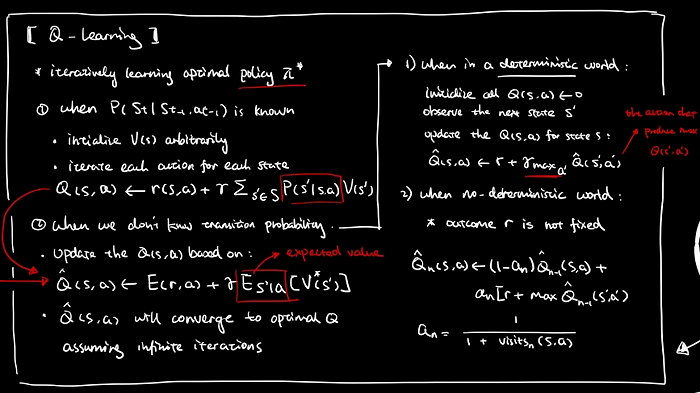 [ Q - Learning ]
* iteratively learning optimal policy π*
① when P(St | St-1, at-1) is known
· intialize V(s) arbitrarily
· iterate each action for each state
Q(s, a) ← r(s,a) + γ Σ s'∈S P(s'|s,a) V(s')
② when we don't know transition probability
· update the Q(s,a) based on:
expected value
Q̂(s,a) ← E(r,a) + γ E s'|a [V*(s')]
· Q̂(s,a) will converge to optimal Q
assuming infinite iterations
1) when in a deterministic world :
initialize all Q(s,a) ← 0
observe the next state s'
update the Q(s,a) for state s :
Q̂(s,a) ← r + γ max a' Q̂(s',a')
the action that
produce max
Q(s',a')
2) when no-deterministic world :
* outcome r is not fixed
Q̂n(s,a) ← (1-an) Q̂n-1(s,a) +
an [r + max Q̂n-1(s',a')
an = 1 / 1 + visitsn(s,a)